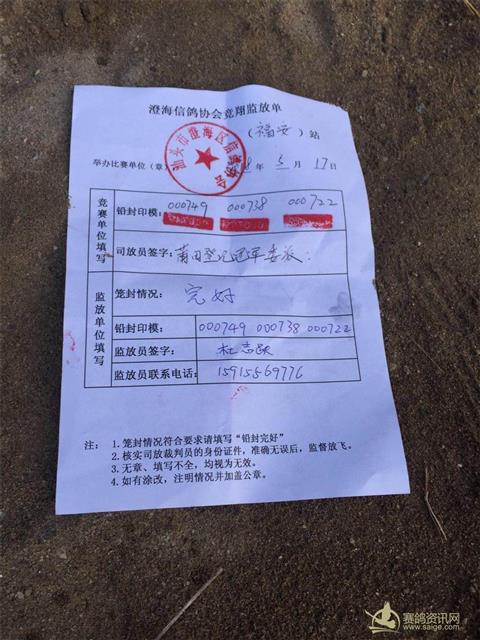 澄海信鸽协会竞翔监放单
（福安）站
举办比赛单位（章） 8年5月17日
汕头市澄海区信鸽协会
竞赛单位填写
铅封印模： 000749 000738 000722
司放员签字：莆田登记冠军委放
监放单位填写
笼封情况： 完好
铅封印模： 000749 000738 000722
监放员签字： 杜志跃
监放员联系电话： 15915569776
注：1.笼封情况符合要求请填写“铅封完好”
2.核实司放裁判员的身份证件，准确无误后，监督放飞。
3.无章、填写不全，均视为无效。
4.如有涂改，注明情况并加盖公章。
赛鸽资讯网
www.saige.com